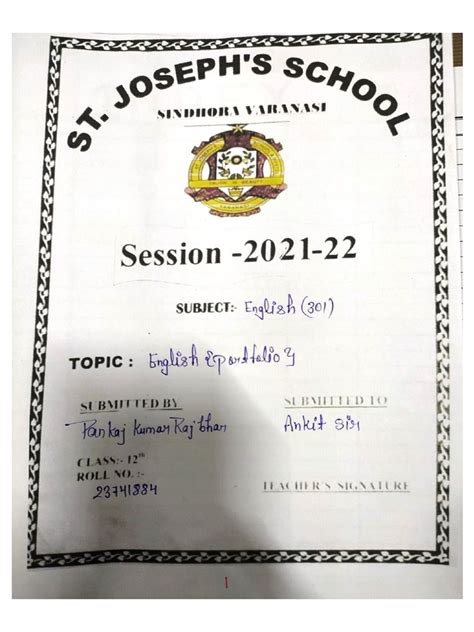 ST. JOSEPH'S SCHOOL
SINDHORA VARANASI
Session -2021-22
SUBJECT:- English (301)
TOPIC : English {Portfolio}
SUBMITTED BY
Pankaj Kumar Rajbhar
SUBMITTED TO
Ankit Sir
CLASS:- 12th
ROLL NO. :-
23741884
TEACHER'S SIGNATURE
1